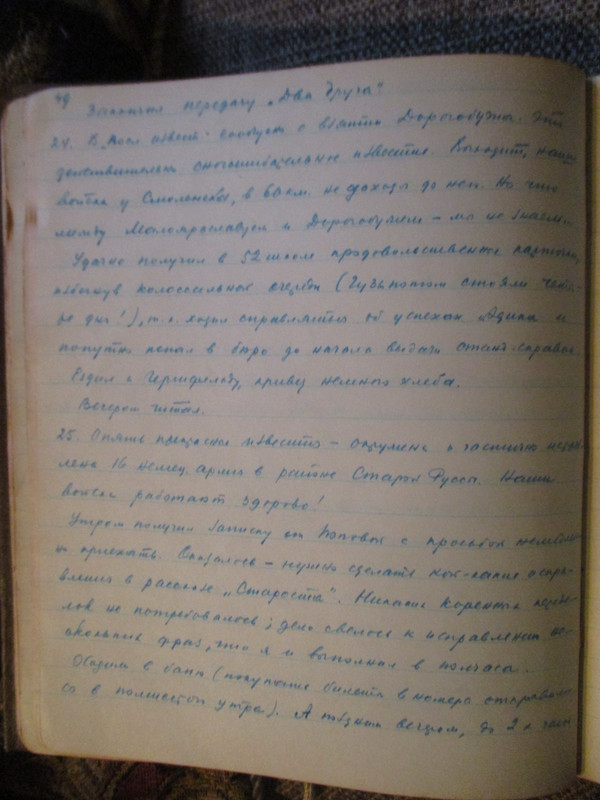 49
Закончил передачу „Два друга“.
24. В посл. известн. сообщен. о взятии Дорогобужа. Это
действительно сногсшибательное известие. Выходит, наши
войска у Смоленска, в 60 км. не доходя до него. Но что
между Малоярославцем и Дорогобужем – мы не знаем.
Удачно получил в 52 школе продовольственные карточки,
избегнув колоссальных очередей (Гузь потом стояли четы-
ре дня!), т.к. ходил справляться об успехах Адика и
попутно попал в бюро до начала выдачи станд. справок.
Ездил к Гершфельду, привез немного хлеба.
Вечером читал.
25. Опять прекрасное известие – окружена и частично
лена 16 немец. армия в районе Старая Русса. Наши
войска работают здорово!
Утром получил записку от Попова с просьбой немедлен-
но приехать. Оказалось – нужно сделать кое-какие испра-
вления в рассказе „Староста“. Никаких коренных переде-
лок не потребовалось; дело свелось к исправлению не-
скольких фраз, что я и выполнил в полчаса.
Ходили в баню (покупать билеты в номера отправил-
ся в полшестого утра). А поздним вечером, до 2х часов